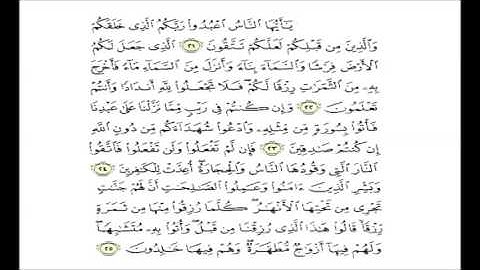 يَٰٓأَيُّهَا ٱلنَّاسُ ٱعْبُدُواْ رَبَّكُمُ ٱلَّذِى خَلَقَكُمْ
وَٱلَّذِينَ مِن قَبْلِكُمْ لَعَلَّكُمْ تَتَّقُونَ ٢١ ٱلَّذِى جَعَلَ لَكُمُ
ٱلْأَرْضَ فِرَٰشًا وَٱلسَّمَآءَ بِنَآءً وَأَنزَلَ مِنَ ٱلسَّمَآءِ مَآءً فَأَخْرَجَ
بِهِۦ مِنَ ٱلثَّمَرَٰتِ رِزْقًا لَّكُمْ ۖ فَلَا تَجْعَلُواْ لِلَّهِ أَندَادًا وَأَنتُمْ
تَعْلَمُونَ ٢٢ وَإِن كُنتُمْ فِى رَيْبٍ مِّمَّا نَزَّلْنَا عَلَىٰ عَبْدِنَا
فَأْتُواْ بِسُورَةٍ مِّن مِّثْلِهِۦ وَٱدْعُواْ شُهَدَآءَكُم مِّن دُونِ ٱللَّهِ
إِن كُنتُمْ صَٰدِقِينَ ٢٣ فَإِن لَّمْ تَفْعَلُواْ وَلَن تَفْعَلُواْ فَٱتَّقُواْ
ٱلنَّارَ ٱلَّتِى وَقُودُهَا ٱلنَّاسُ وَٱلْحِجَارَةُ ۖ أُعِدَّتْ لِلْكَٰفِرِينَ ٢٤
وَبَشِّرِ ٱلَّذِينَ ءَامَنُواْ وَعَمِلُواْ ٱلصَّٰلِحَٰتِ أَنَّ لَهُمْ جَنَّٰتٍ
تَجْرِى مِن تَحْتِهَا ٱلْأَنْهَٰرُ ۖ كُلَّمَا رُزِقُواْ مِنْهَا مِن ثَمَرَةٍ
رِّزْقًا ۙ قَالُواْ هَٰذَا ٱلَّذِى رُزِقْنَا مِن قَبْلُ ۖ وَأُتُواْ بِهِۦ مُتَشَٰبِهًا ۖ
وَلَهُمْ فِيهَآ أَزْوَٰجٌ مُّطَهَّرَةٌ ۖ وَهُمْ فِيهَا خَٰلِدُونَ ٢٥